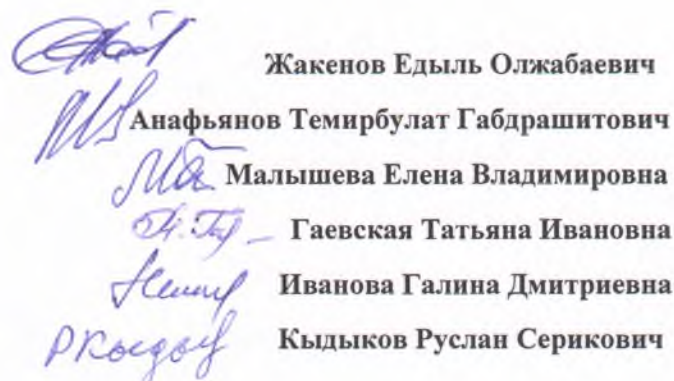 Жакенов Едыль Олжабаевич
Анафьянов Темирбулат Габдрашитович
Малышева Елена Владимировна
Гаевская Татьяна Ивановна
Иванова Галина Дмитриевна
Кыдыков Руслан Серикович